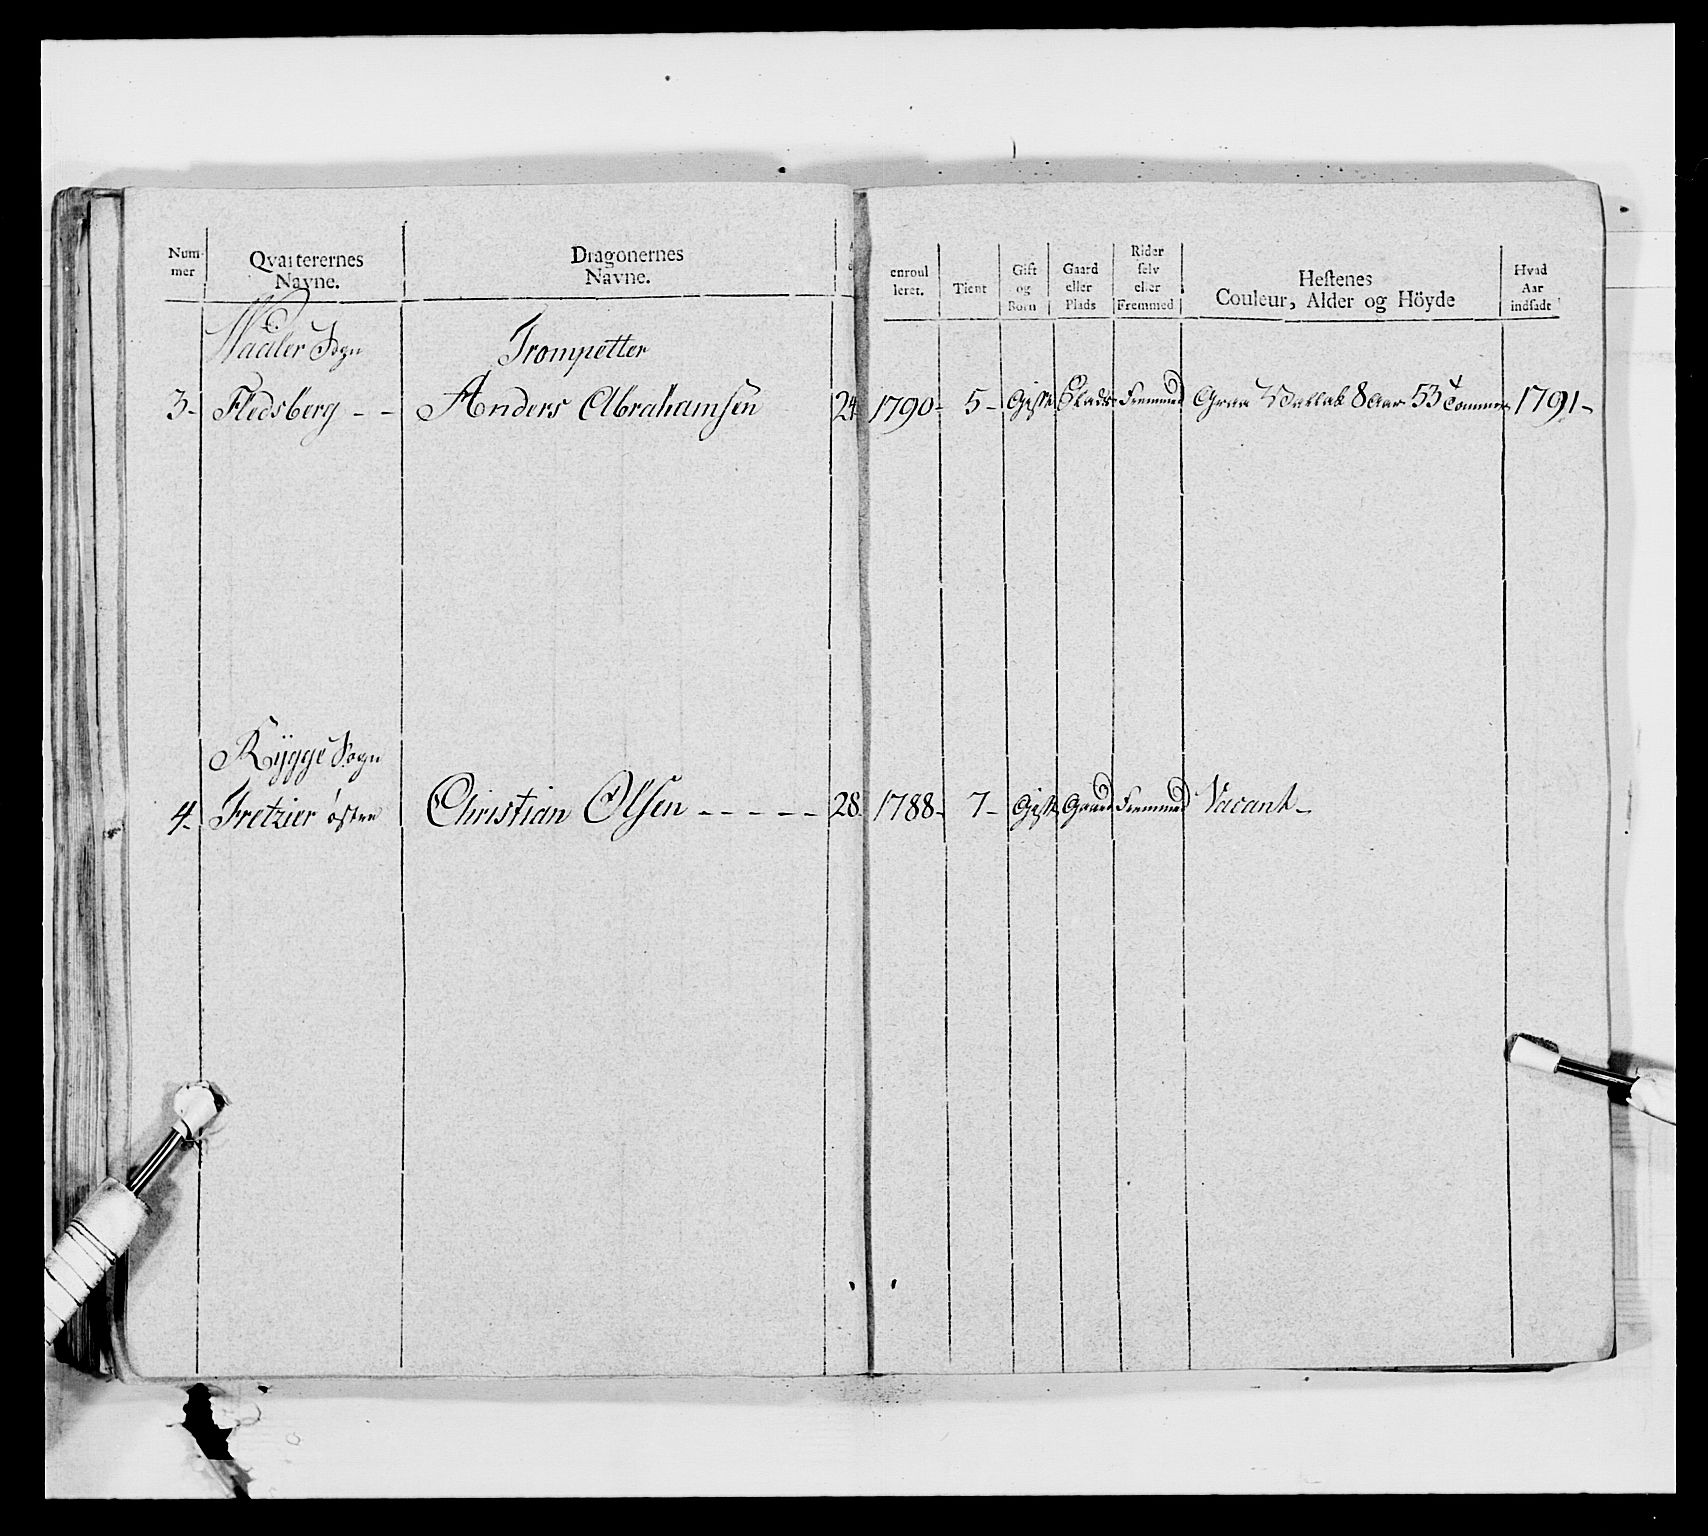 Num-
mer
Qvarterernes
Navne.
Dragonernes
Navne.
enroul
leret.
Tient
Gift
og
Born
Gaard
eller
Plads
Rider
selv
eller
Fremmed
Hestenes
Couleur, Alder og Höyde
Hvad
Aar
indsadt
Waaler Sogn
Trompetter
3- Fledsberg - - Anders Abrahamsen 24 1790- 5- Gift Plads Fremmed Graa Vallak 8 Aar 53 Tommer 1791-
Rÿgge Sogn
4- Fretzier østre Christian Olsen - - - - - 28 1788- 7- Gift Gaard Fremmed Vacant-